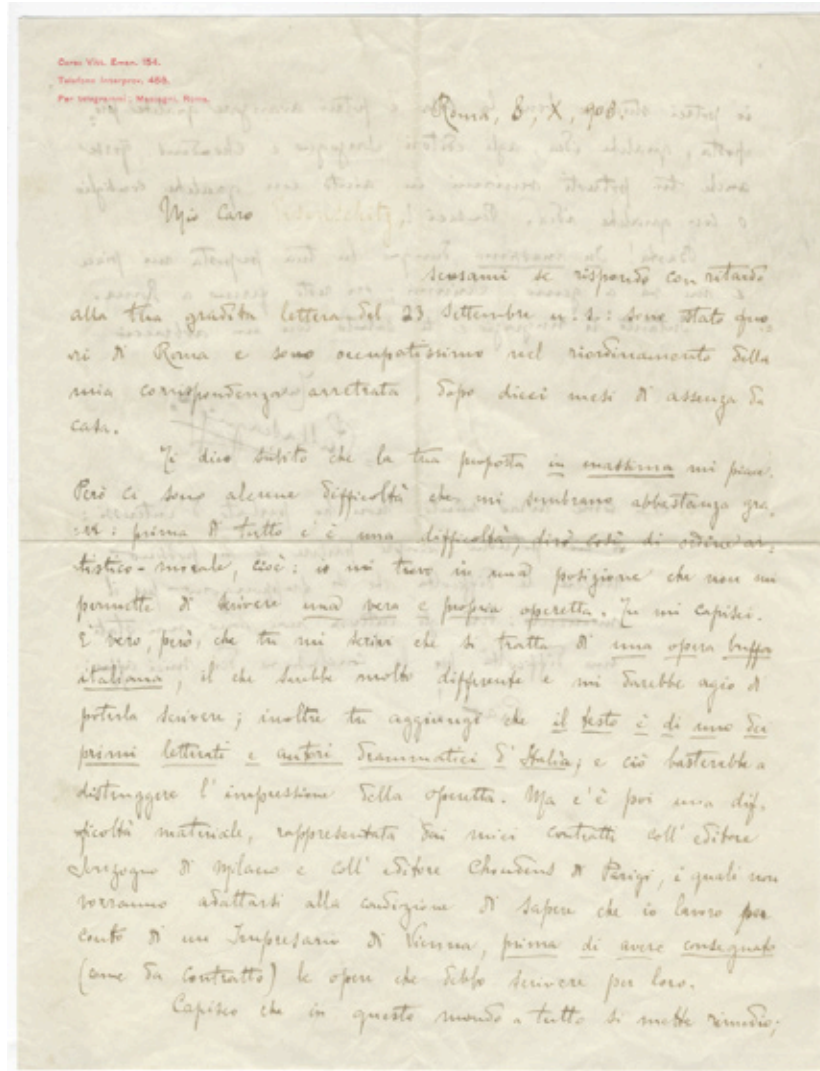 Corso Vitt. Eman. 154.
Telefono Interprov. 468.
Per telegrammi: Mascagni, Roma.
Roma, 8, X, 908.
Mio Caro
scusami se rispondo con ritardo
alla tua gradita lettera del 23 settembre u. s.: sono stato fuo
ri di Roma e sono occupatissimo nel riordinamento della
mia corrispondenza arretrata, dopo dieci mesi di assenza da
casa.
Ti dico subito che la tua proposta in massima mi piace.
Però ci sono alcune difficoltà che mi sembrano abbastanza gra-
vi: prima di tutto c'è una difficoltà, dirò così, di ordine ar-
tistico-morale, cioè: io mi trovo in una posizione che non mi
permette di scrivere una vera e propria operetta. Tu mi capisci.
È vero, però, che tu mi scrivi che si tratta di una opera buffa
italiana, il che sarebbe molto differente e mi darebbe agio di
poterla scrivere; inoltre tu aggiungi che il testo è di uno dei
primi letterati e autori drammatici d'Italia; e ciò basterebbe a
distruggere l'impressione della operetta. Ma c'è poi una dif-
ficoltà materiale, rappresentata dai miei contratti coll'editore
Sonzogno di Milano e coll'editore Choudens di Parigi, i quali non
vorranno adattarsi alla condizione di sapere che io lavoro per
conto di un Impresario di Vienna, prima di avere consegnato
(come da contratto) le opere che debbo scrivere per loro.
Capisco che in questo mondo a tutto si mette rimedio;